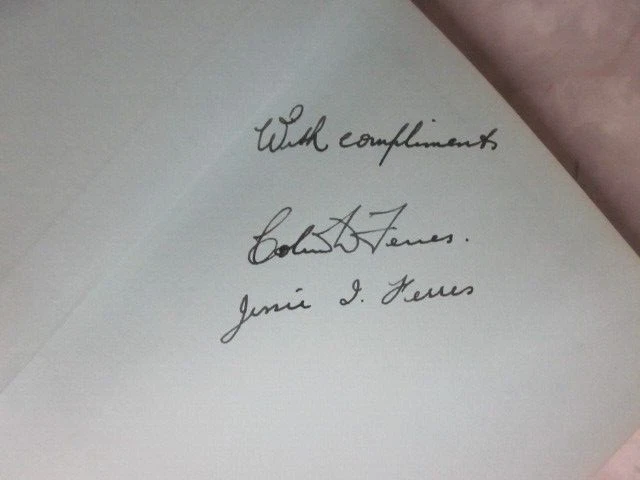 With compliments
Colin D. Ferres.
Jessie I. Ferres